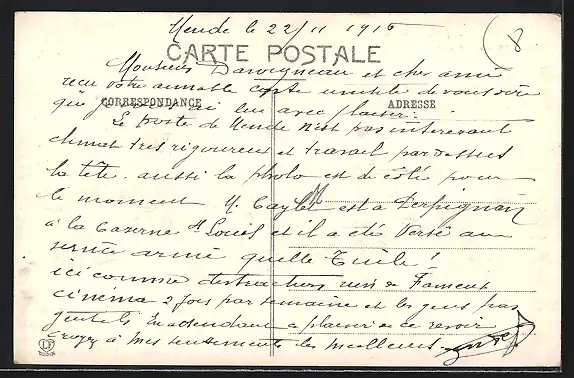 Mende le 22/11 1915
CARTE POSTALE
Monsieur Darvigneau et cher ami
reçu votre aimable carte inutile de vous dire
CORRESPONDANCE
ADRESSE
que je ai lue avec plaisir.
Le poste de Mende n'est pas interessant
climat très rigoureux et travail par dessus
la tête. aussi la photo est de côté pour
le moment M. Caylet est a Perpignan
à la Caserne St Louis et il a été versé au
service armé quelle Tuile!
ici comme distractions rien de Fameux
cinéma 2 fois par semaine et les gens pas
gentils En attendant le plaisir de ce revoir
croyez à mes sentiments les meilleurs
8
LF